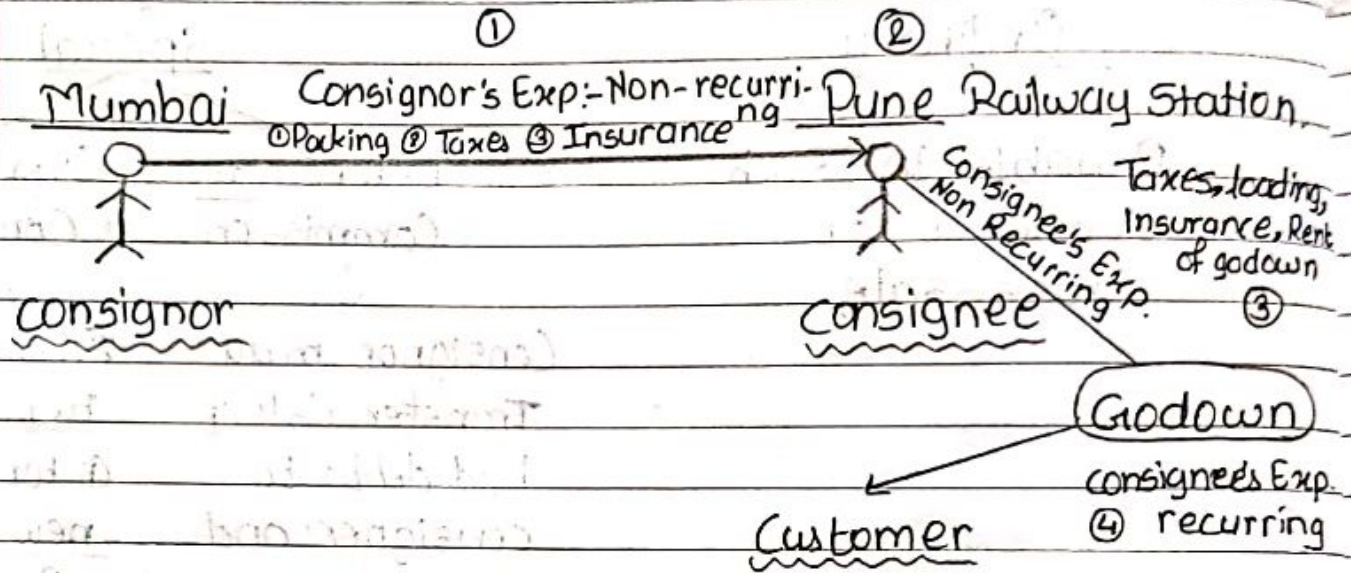 ① ②
Mumbai Consignor's Exp:-Non-recurri-ng Pune Railway Station.
①Packing ② Taxes ③ Insurance
Consignee's Exp.
Non Recurring
Taxes, loading,
Insurance, Rent
of godown
③
consignor consignee
Godown
consignee's Exp.
④ recurring
Customer